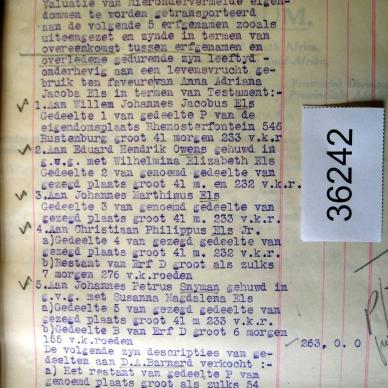 Valuatie van hierondervermelde eigen-
dommen te worden getransporteerd
aan de volgende 5 erfgenamen zooals
uiteengezet en zynde in termen van
overeenkomst tussen erfgenamen en
overledene gedurende zyn leeftyd -
onderhevig aan een levensvrucht ge-
bruik ten faveurevan Anna Adriana
Jacoba Els in termen van Testament:-
1.Aan Willem Johannes Jacobus Els
Gedeelte 1 van gedeelte P van de
eigendomsplaats Rhenosterfontein 546
Rustenburg groot 41 morgen 233 v.k.r
2.Aan Eduard Hendrik Owens gehuwd in
g.v.g. met Wilhelmina Elizabeth Els
Gedeelte 2 van genoemd gedeelte van
gezegd plaats groot 41 m. en 232 v.k.r.
3.Aan Johannes Marthinus Els
Gedeelte 3 van genoemd gedeelte van
gezegd plaats groot 41 morgen 233 v.k.r.
4.Aan Christiaan Philippus Els Jr.
a)Gedeelte 4 van gezegd gedeelte van
gezegd plaats groot 41 m. 232 v.k.r.
b)Restant van Erf D groot als zulks
7 morgen 276 v.k.roeden
5.Aan Johannes Petrus Snyman gehuwd in
g.v.g. met Susanna Magdalena Els
a)Gedeelte 5 van gezegd gedeelte van
gezegd plaats groot 41 m 233 v.k.r.
b)Gedeelte B van Erf D groot 6 morgen
155 v.k.roeden
263, 0. 0
De volgende zyn descripties van ge-
deelten aan D.A.Barnard verkocht :-
a) Het restant van gedeelte P van
genoemd plaats groot als zulks 54
36242